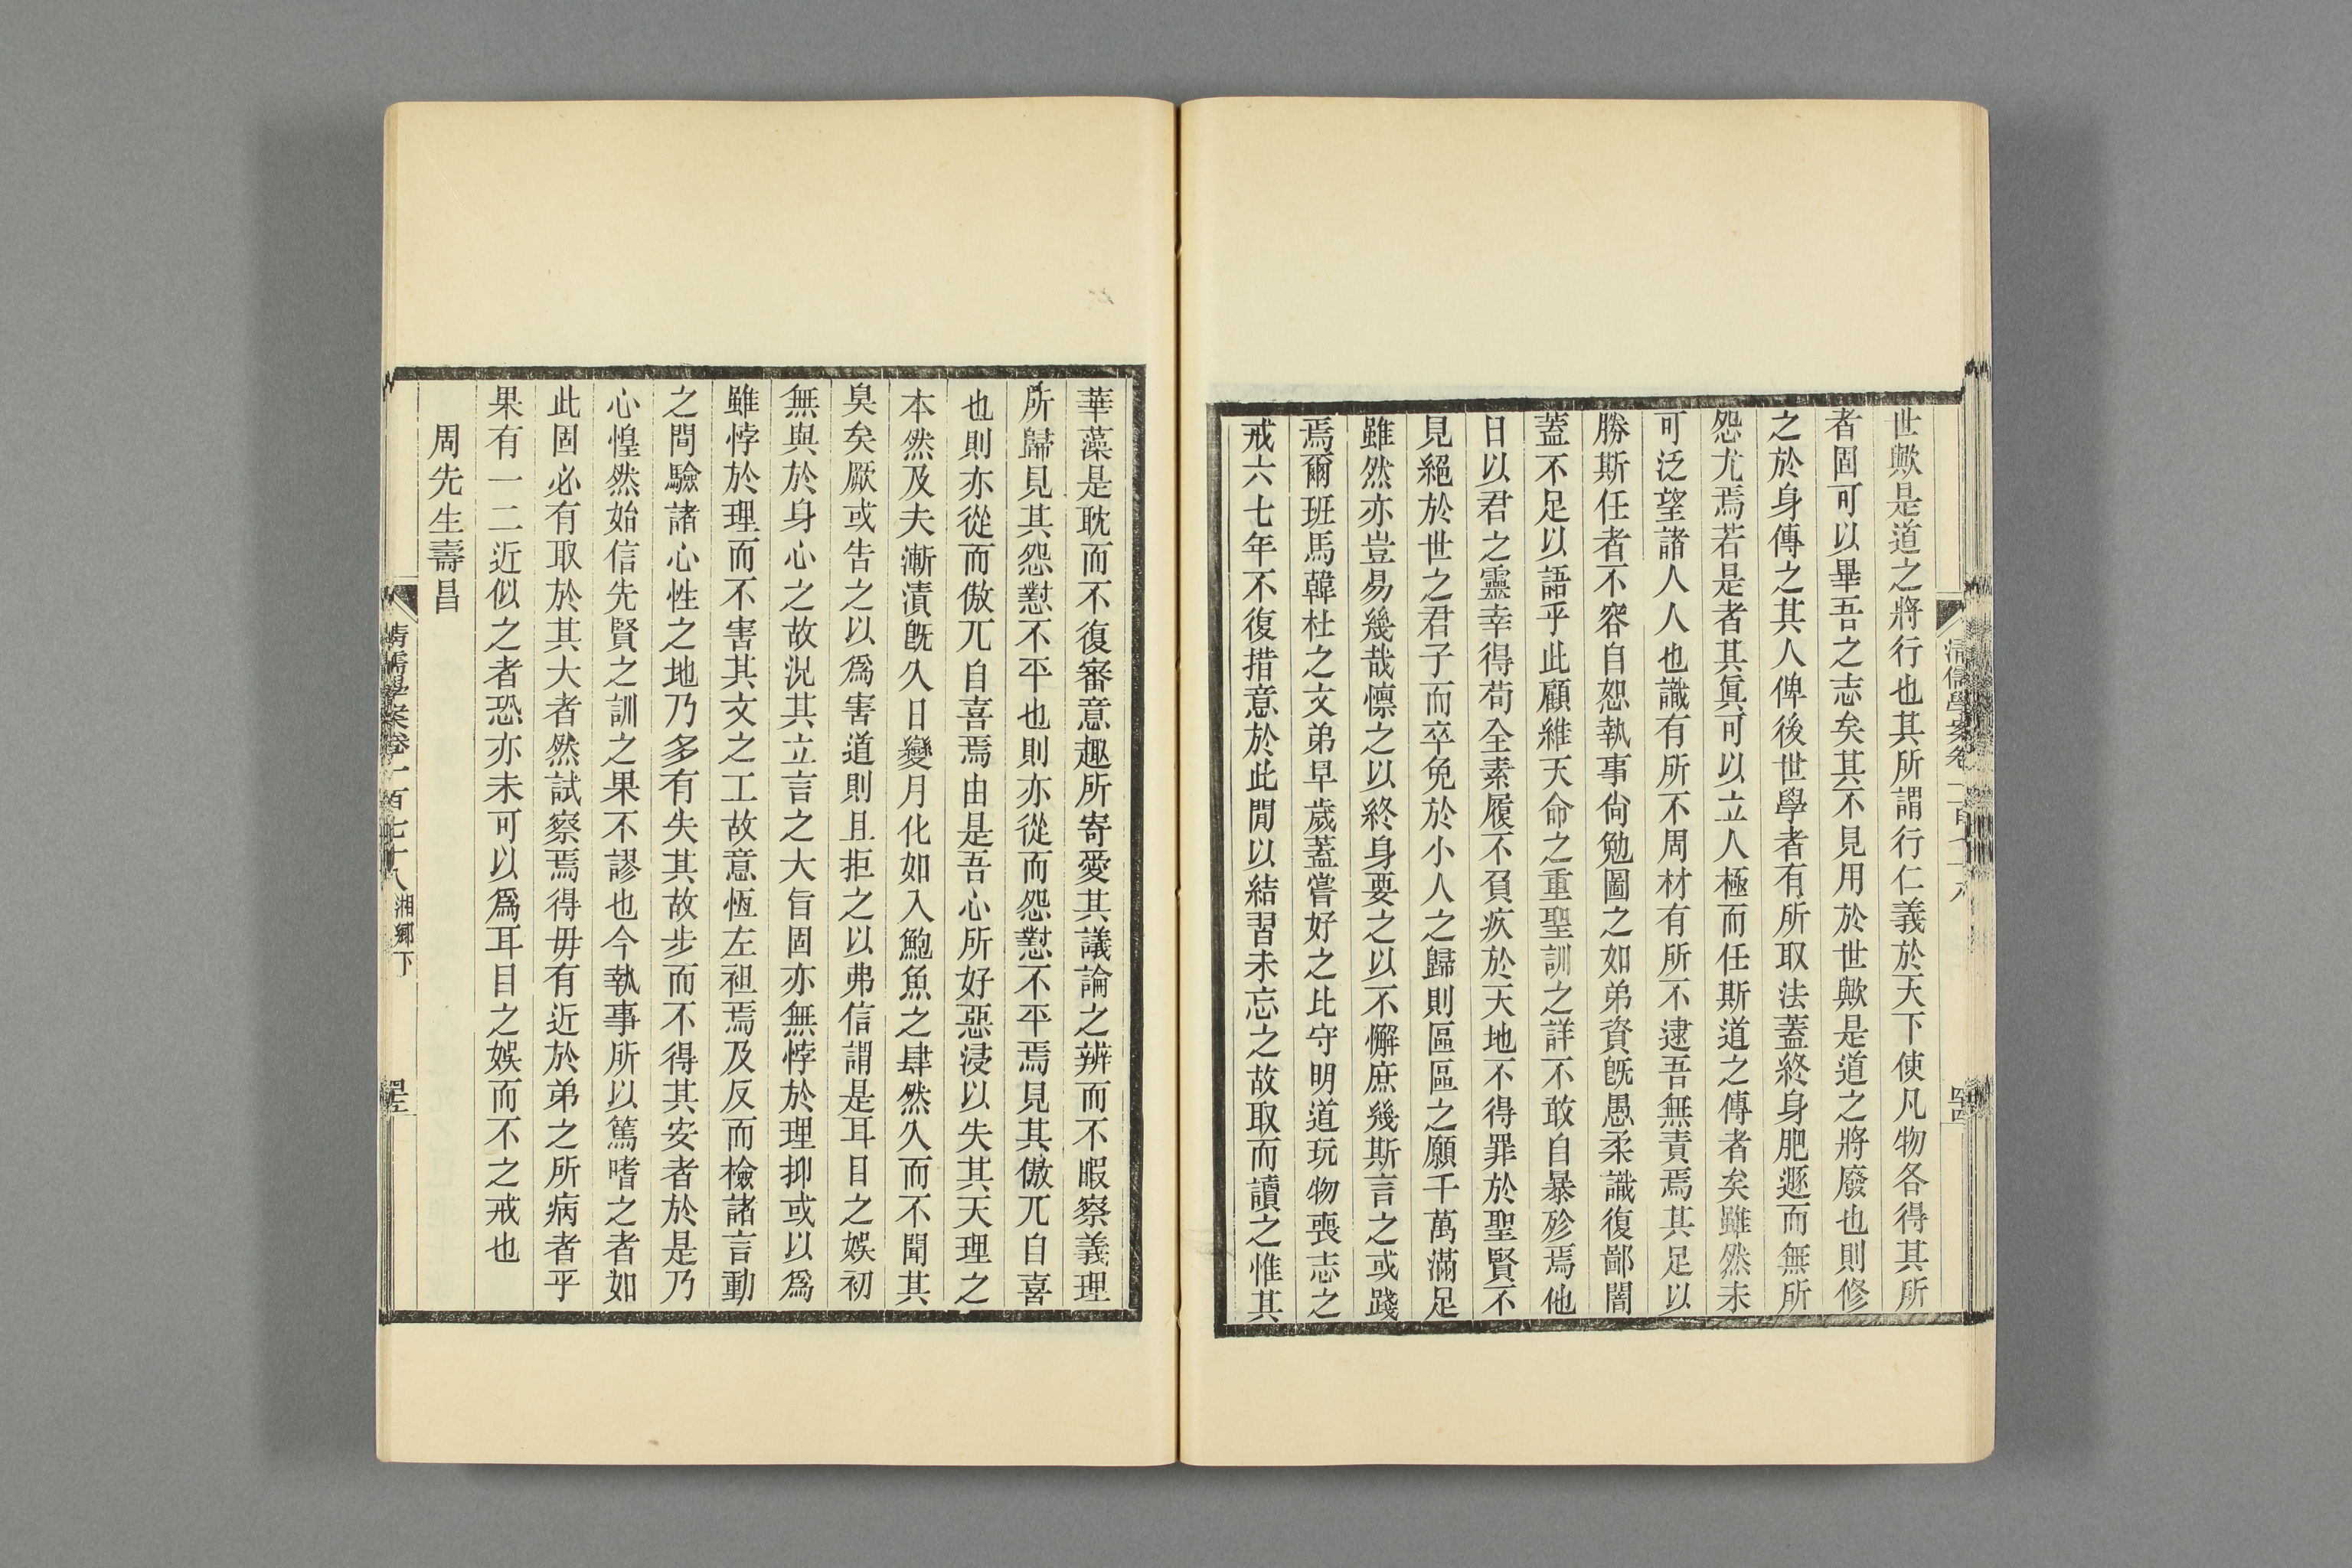 世歟是道之將行也其所謂行仁義於天下使凡物各得其所
者固可以畢吾之志矣其不見用於世歟是道之將廢也則修
之於身傳之其人俾後世學者有所取法蓋終身肥遯而無所
怨尤焉若是者其眞可以立人極而任斯道之傳者矣雖然未
可泛望諸人人也識有所不周材有所不逮吾無責焉其足以
勝斯任者不容自恕執事尙勉圖之如弟資旣愚柔識復鄙闇
蓋不足以語乎此顧維天命之重聖訓之詳不敢自暴殄焉他
日以君之靈幸得苟全素履不負疚於天地不得罪於聖賢不
見絕於世之君子而卒免於小人之歸則區區之願千萬滿足
雖然亦豈易幾哉懍之以終身要之以不懈庶幾斯言之或踐
焉爾班馬韓杜之文弟早歲蓋嘗好之比守明道玩物喪志之
戒六七年不復措意於此閒以結習未忘之故取而讀之惟其
華藻是耽而不復審意趣所寄愛其議論之辨而不暇察義理
所歸見其怨懟不平也則亦從而怨懟不平焉見其傲兀自喜
也則亦從而傲兀自喜焉由是吾心所好惡浸以失其天理之
本然及夫漸漬旣久日變月化如入鮑魚之肆然久而不聞其
臭矣厥或告之以爲害道則且拒之以弗信謂是耳目之娛初
無與於身心之故況其立言之大旨固亦無悖於理抑或以爲
雖悖於理而不害其文之工故意恆左袒焉及反而檢諸言動
之間驗諸心性之地乃多有失其故步而不得其安者於是乃
心惶然始信先賢之訓之果不謬也今執事所以篤嗜之者如
此固必有取於其大者然試察焉得毋有近於弟之所病者乎
果有一二近似之者恐亦未可以爲耳目之娛而不之戒也
周先生壽昌
清儒學案卷一百七十八 湘鄉下